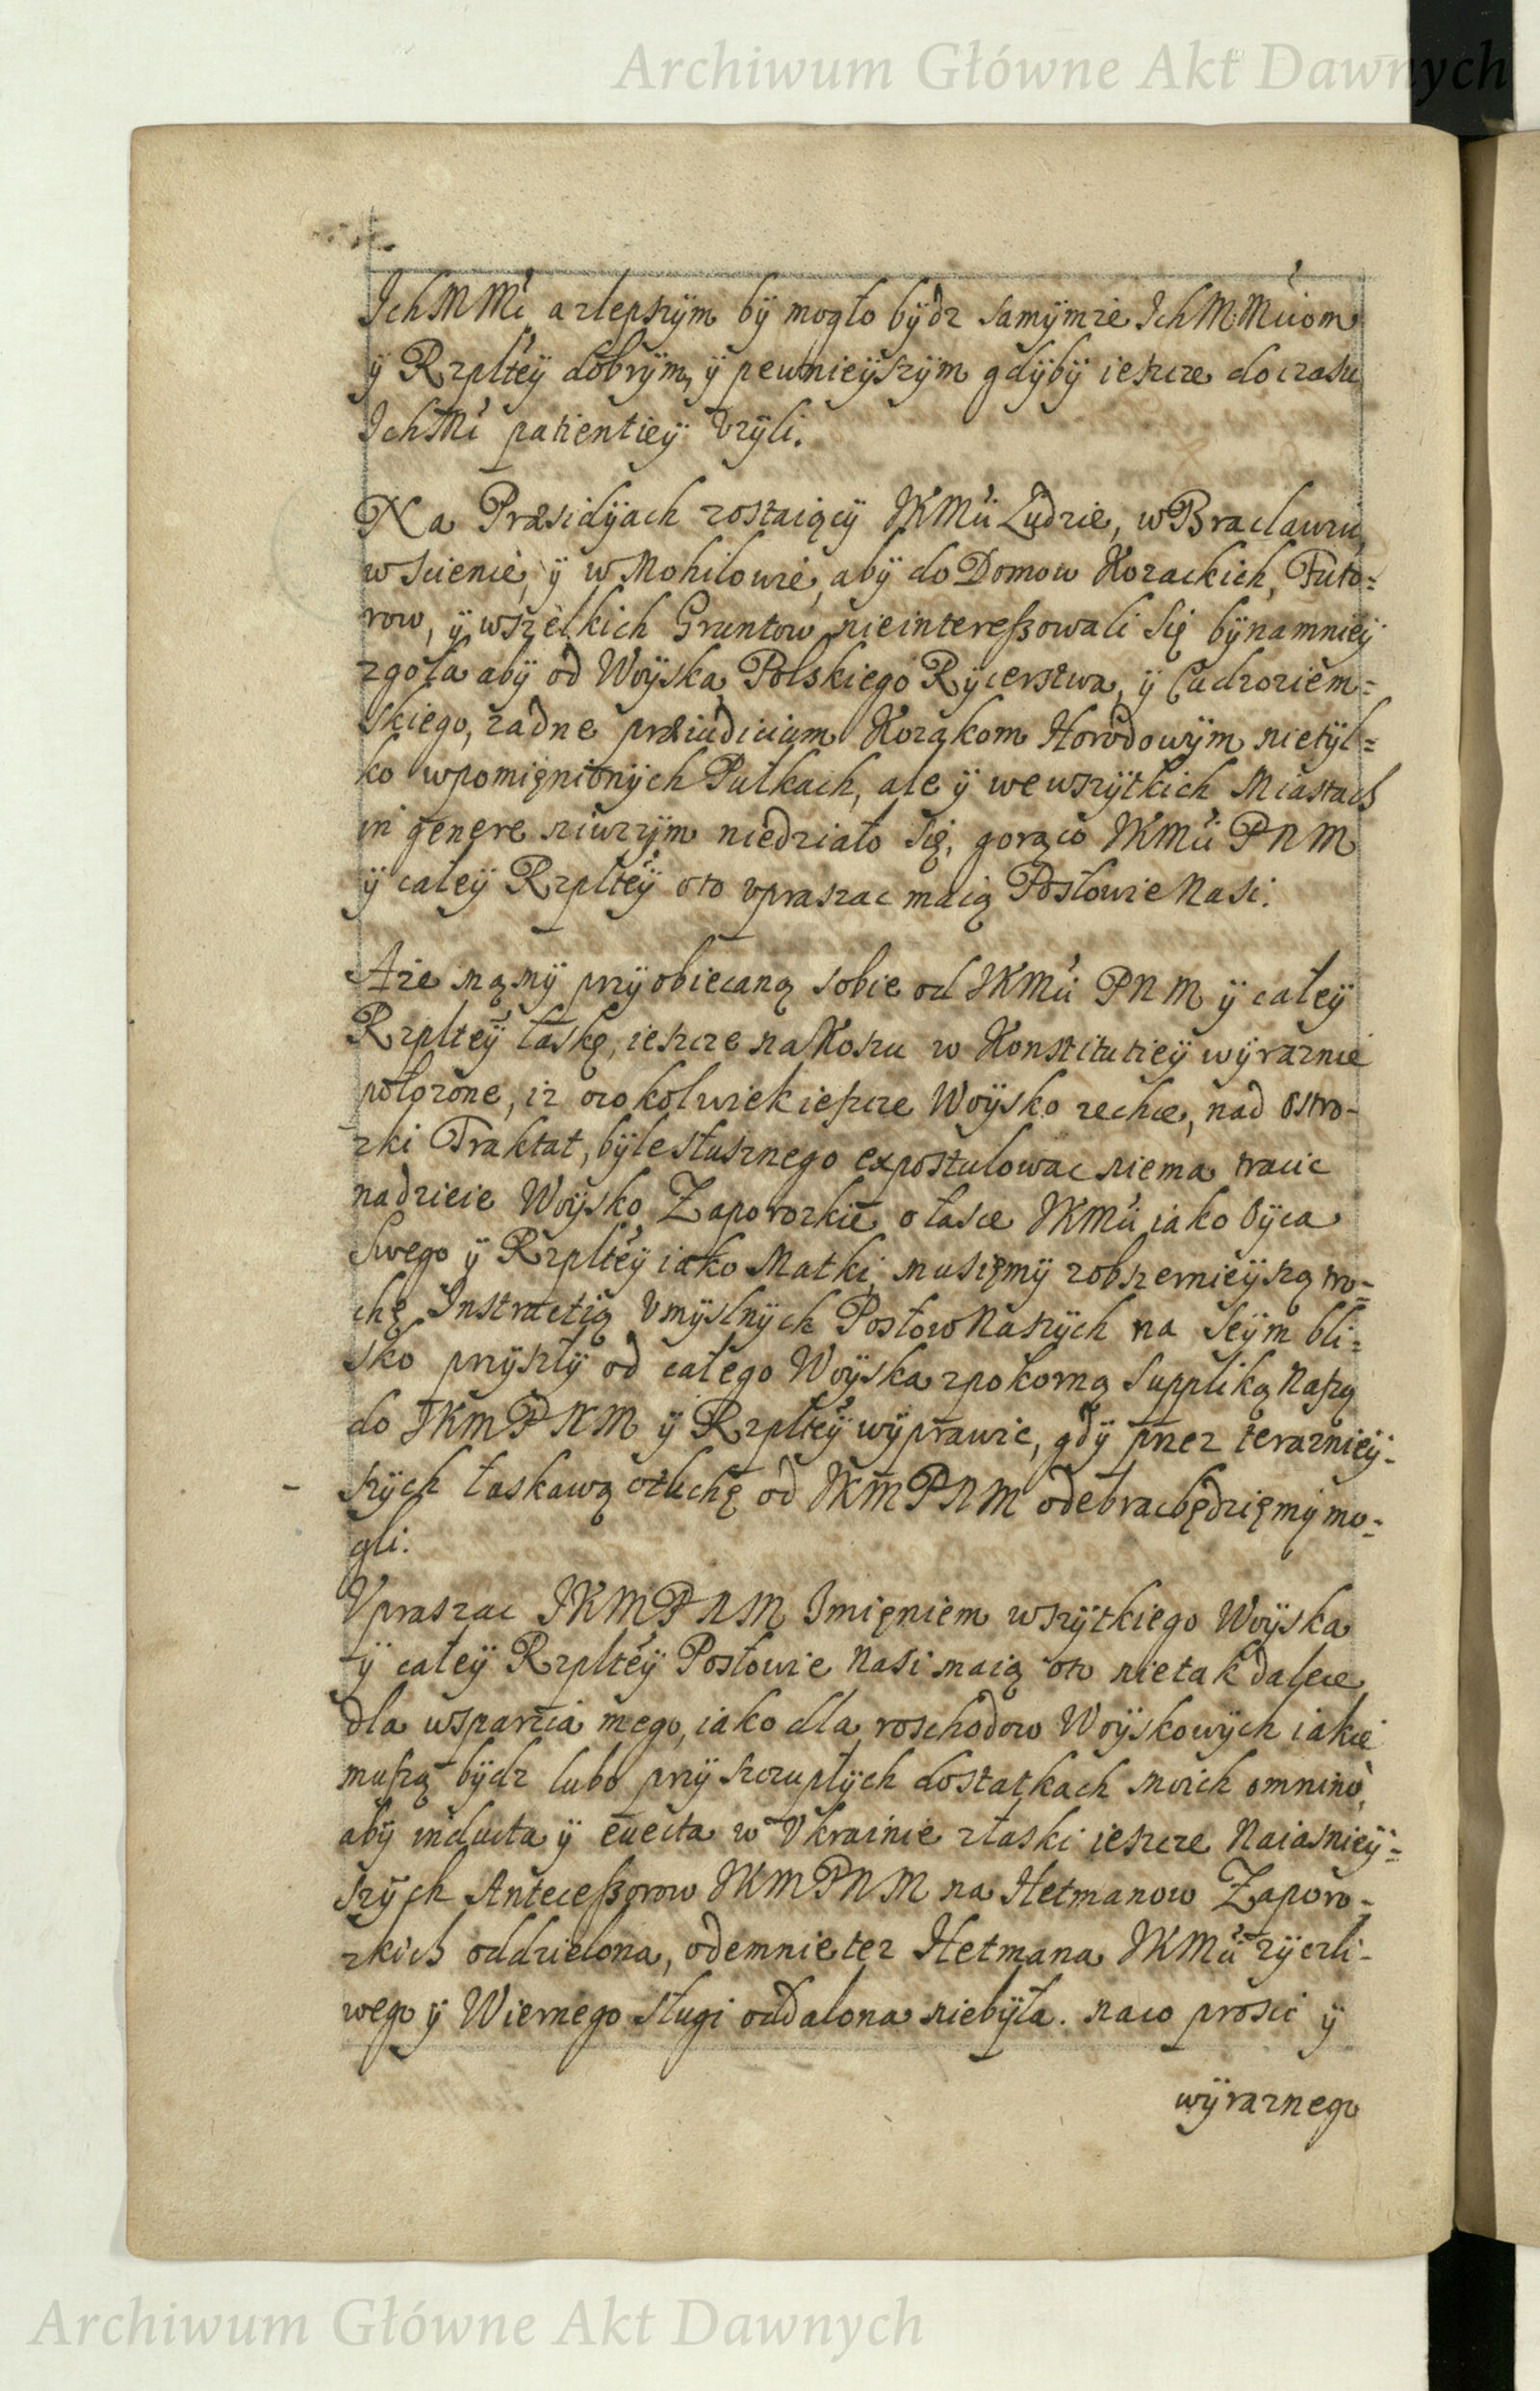 Archiwum Główne Akt Dawnych
IchMMci, a zlepszÿm bÿ mogło bÿdz samÿmże IchMMciom
ÿ Rzplteÿ dobrÿm, ÿ pewnieÿszÿm gdÿbÿ ieszcze do czasu
IchMci patientieÿ Vżÿli.
Na Præsidÿach zostaiącÿ JKMci Ludzie, w Bracławiu,
w Scienie, ÿ w Mohilowie, abÿ do Domow Kozackich, Futo=
row, ÿ wszelkich Gruntow nieinteressowali się bÿnamnieÿ
zgoła abÿ od Woÿska Polskiego Rÿcerstwa, ÿ Cudzoziem=
skiego, żadne præiudicium Kozakom Horodowÿm nietÿl=
ko wpomięnionÿch Pułkach, ale ÿ we wszÿtkich Miastach
in genere niwczÿm niedziało się, gorąco JKMci PNM
ÿ całeÿ Rzplteÿ oto vpraszac maią Posłowie Nasi.
Aże mąmÿ przÿobiecaną sobie od JKMci PNM ÿ całeÿ
Rzplteÿ łaskę, ieszcze na Koszu w Konstitutieÿ wÿraznie
położone, iż czokolwiek ieszcze Woÿsko zechce, nad Ostro-
zki Traktat, bÿle słusznego expostulowac niema tracic
nadzieie Woÿsko Zaporozkie o łasce JKMci iako Oÿca
Swego ÿ Rzplteÿ iako Matki, musięmÿ zobszernieÿszą tro=
chę Instructią Vmÿslnÿch Posłow Naszÿch na Seÿm bli=
sko przÿszłÿ od całego Woÿska zpokorną Suppliką Naszą
do JKMPNM ÿ Rzplteÿ wÿprawic, gdÿ przez terazniëÿ-
szÿch łaskawą otuchę od JKMPNM odebrac będzięmÿ mo=
gli.
Vpraszac JKMPNM Imięniem wszÿtkiego Woÿska
ÿ całeÿ Rzplteÿ Posłowie Nasi maią oto nie tak dalece
dla wsparcia mego, iako dla roschodow Woÿskowÿch iakie
muszą bÿdz lubo przÿ szczupłÿch dostatkach moich omnino,
abÿ inducta ÿ evecta w Vkrainie złaski ieszcze Naiasnieÿ=
szÿch Antecessorow JKMPNM na Hetmanow Zaporo-
zkich oddzielona, odemnie tez Hetmana JKMci zÿczli-
wego ÿ Wiernego sługi oddalona niebÿła. naco prosic ÿ
wÿraznego
Archiwum Główne Akt Dawnych